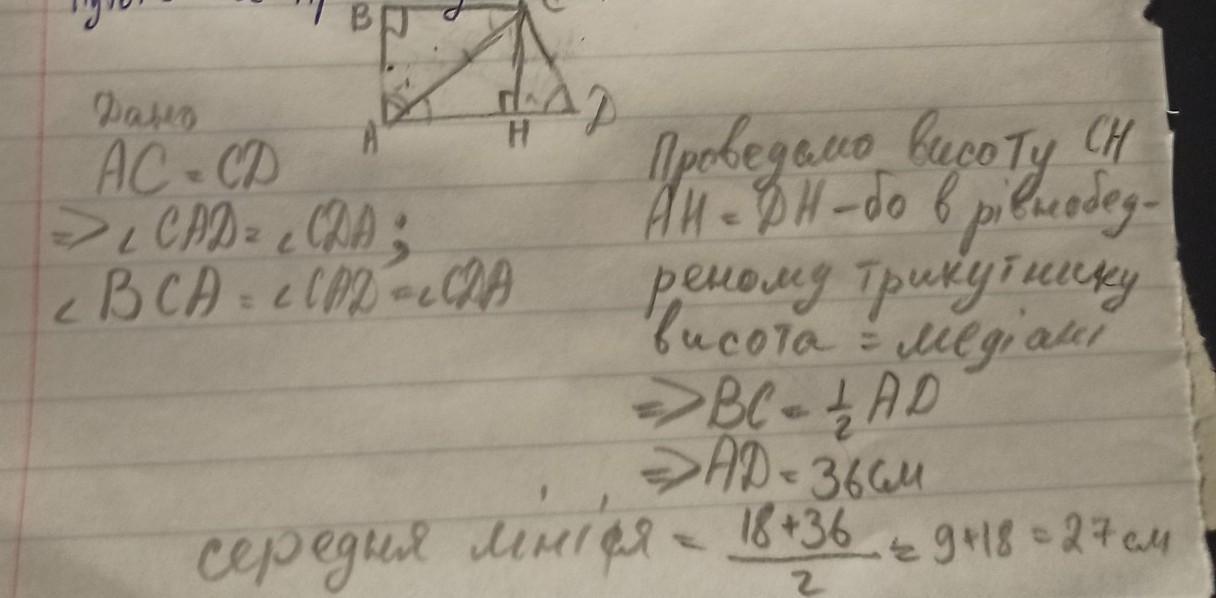 B
C
A
H
D
Дано
AC = CD
=> ∠CAD = ∠CDA;
∠BCA = ∠CAD = ∠CDA
Проведемо висоту CH
AH = DH - бо в рівнобед-
реному трикутнику
висота = медіані
=> BC = 1/2 AD
=> AD = 36 см
середня лінія = (18+36)/2 = 9+18 = 27 см